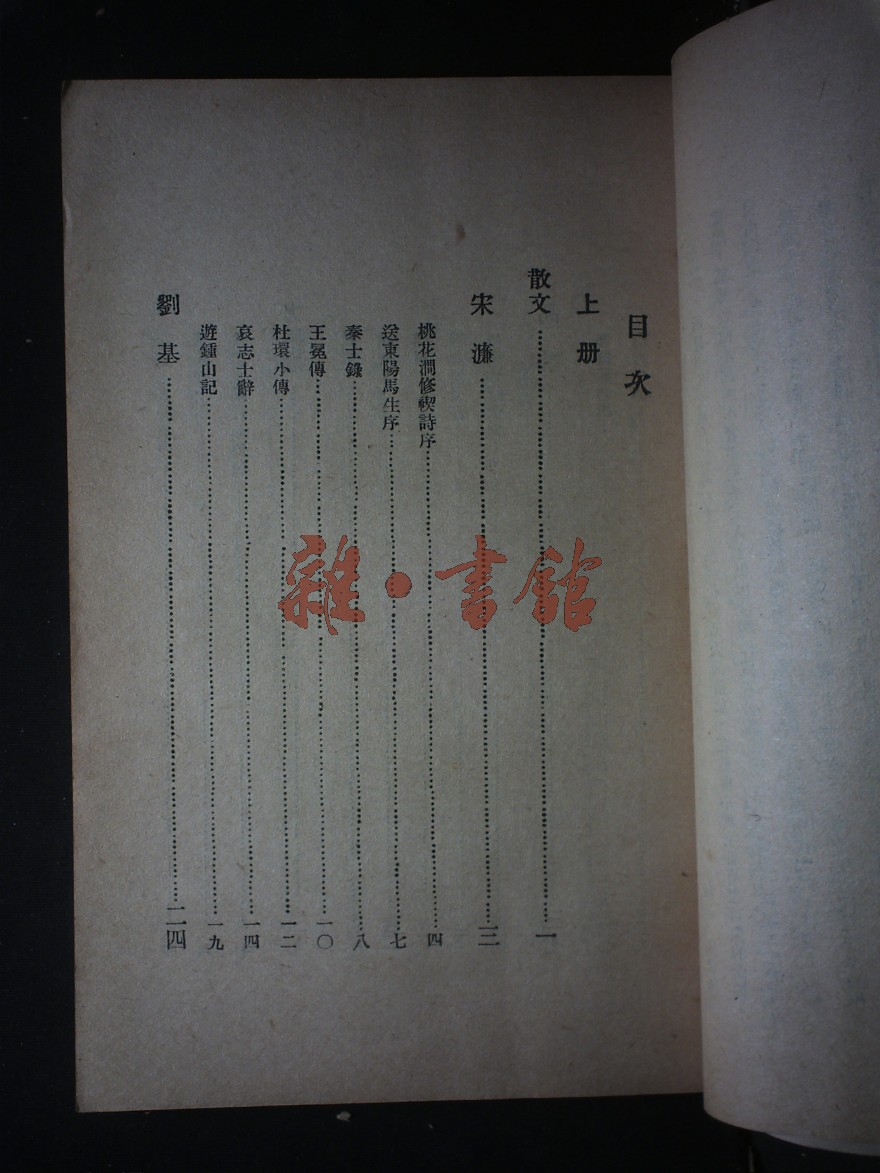 目次
上册
散文……一
宋濂……三
桃花澗修禊詩序……四
送東陽馬生序……七
秦士錄……八
王冕傳……一〇
杜環小傳……一二
哀志士辭……一四
遊鍾山記……一九
劉基……二四
雜·書館